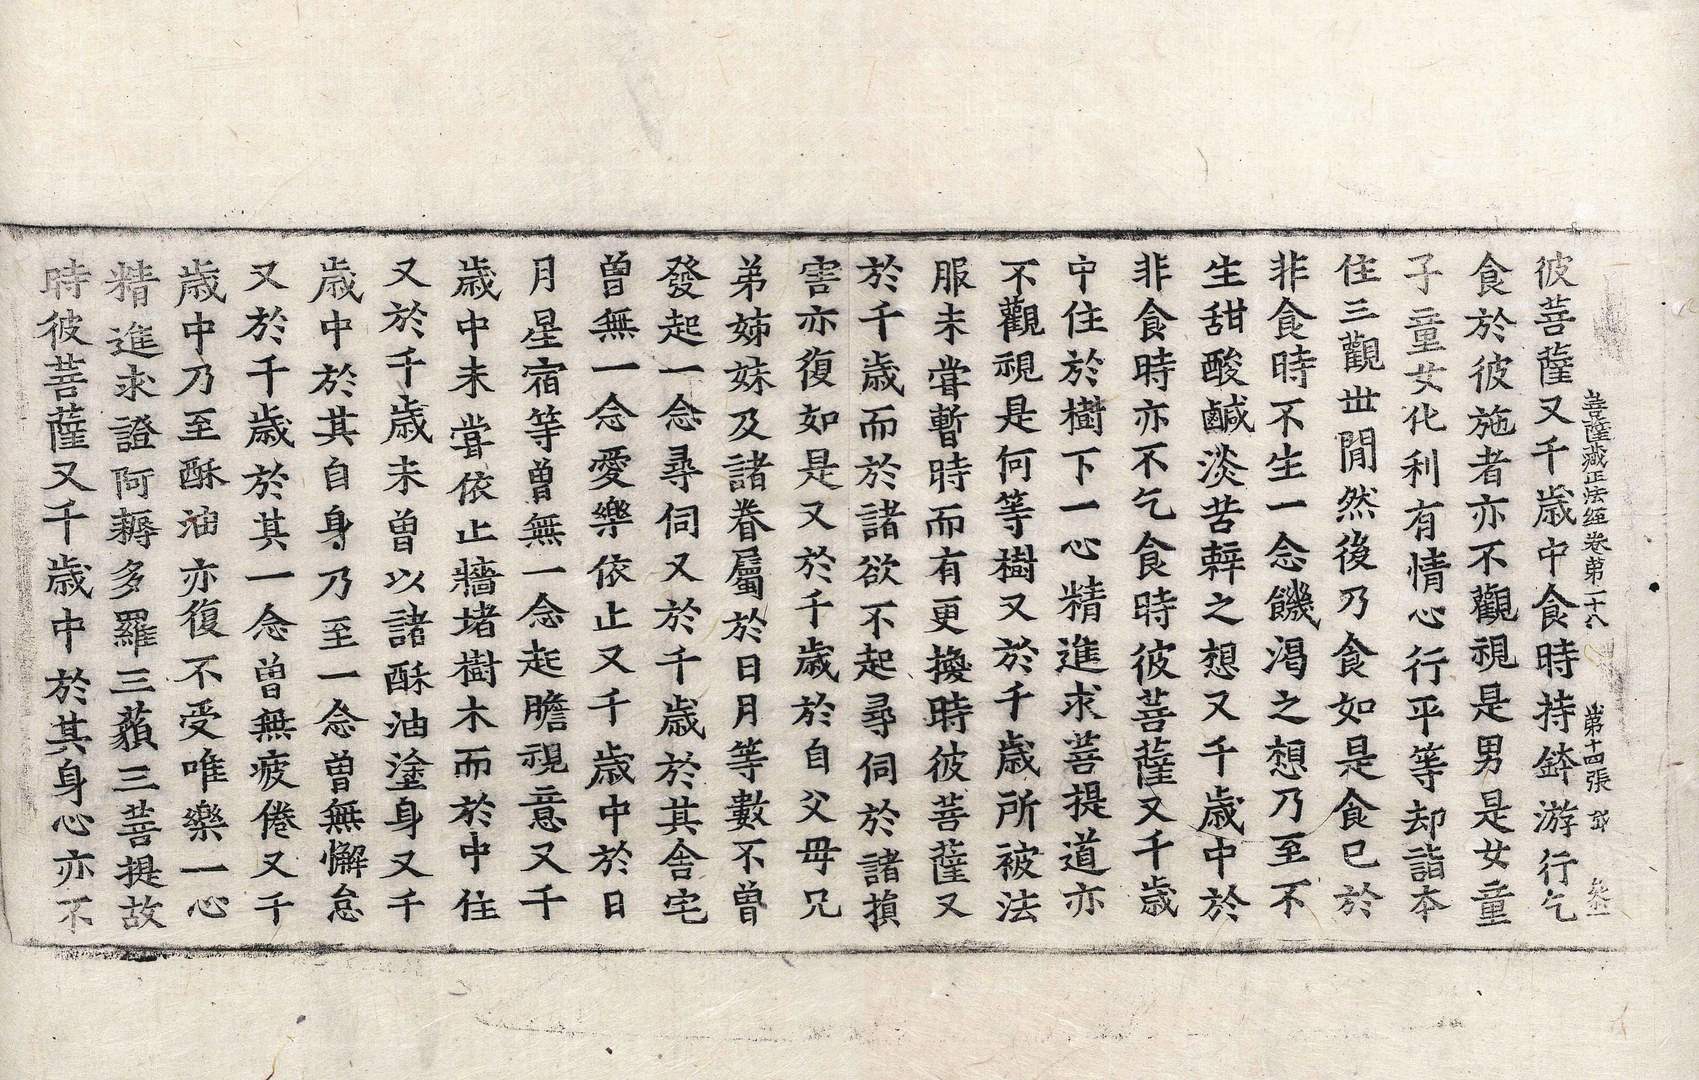 菩薩藏正法經卷第二十八 第十四張
彼菩薩又千歲中食時持鉢游行乞
食於彼施者亦不觀視是男是女童
子童女化利有情心行平等却詣本
住三觀世間然後乃食如是食已於
非食時不生一念饑渴之想乃至不
生甜酸鹹淡苦辢之想又千歲中於
非食時亦不乞食時彼菩薩又千歲
中住於樹下一心精進求菩提道亦
不觀視是何等樹又於千歲所被法
服未甞暫時而有更換時彼菩薩又
於千歲而於諸欲不起尋伺於諸損
害亦復如是又於千歲於自父母兄
弟姊妹及諸眷屬於日月等數不曾
發起一念尋伺又於千歲於其舍宅
曾無一念愛樂依止又千歲中於日
月星宿等曾無一念起瞻視意又千
歲中未甞依止牆堵樹木而於中住
又於千歲未曾以諸酥油塗身又千
歲中於其自身乃至一念曾無懈怠
又於千歲於其一念曾無疲倦又千
歲中乃至酥油亦復不受唯樂一心
精進求證阿耨多羅三藐三菩提故
時彼菩薩又千歲中於其身心亦不